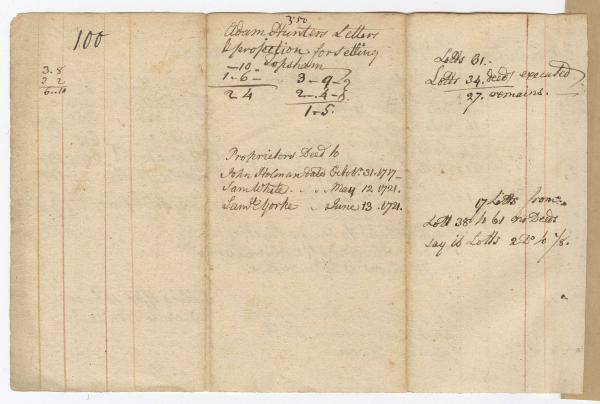 100
3.8
3 2
6..10
350
Adam Hunters Letters
& projection for setling
Topsham
-10
1-6-
2 4
3-9-
2-4-
1-5.
Proprietors Deed to
John Holman dated Octobr. 31. 1717-
Sam White . . . May 12 1721.
Saml. Yorke . . June 13. 1721.
Lotts 31.
Lotts 34. deeds executed
27. remains.
17 Lotts from
Lott 38 to 61 no Deeds
say 18 Lotts 2 Do. to 1/8.